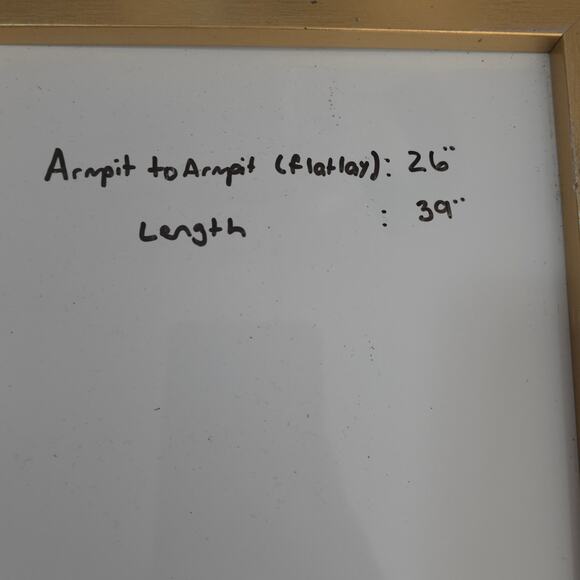 Armpit to Armpit (flatlay): 26"
Length : 39"